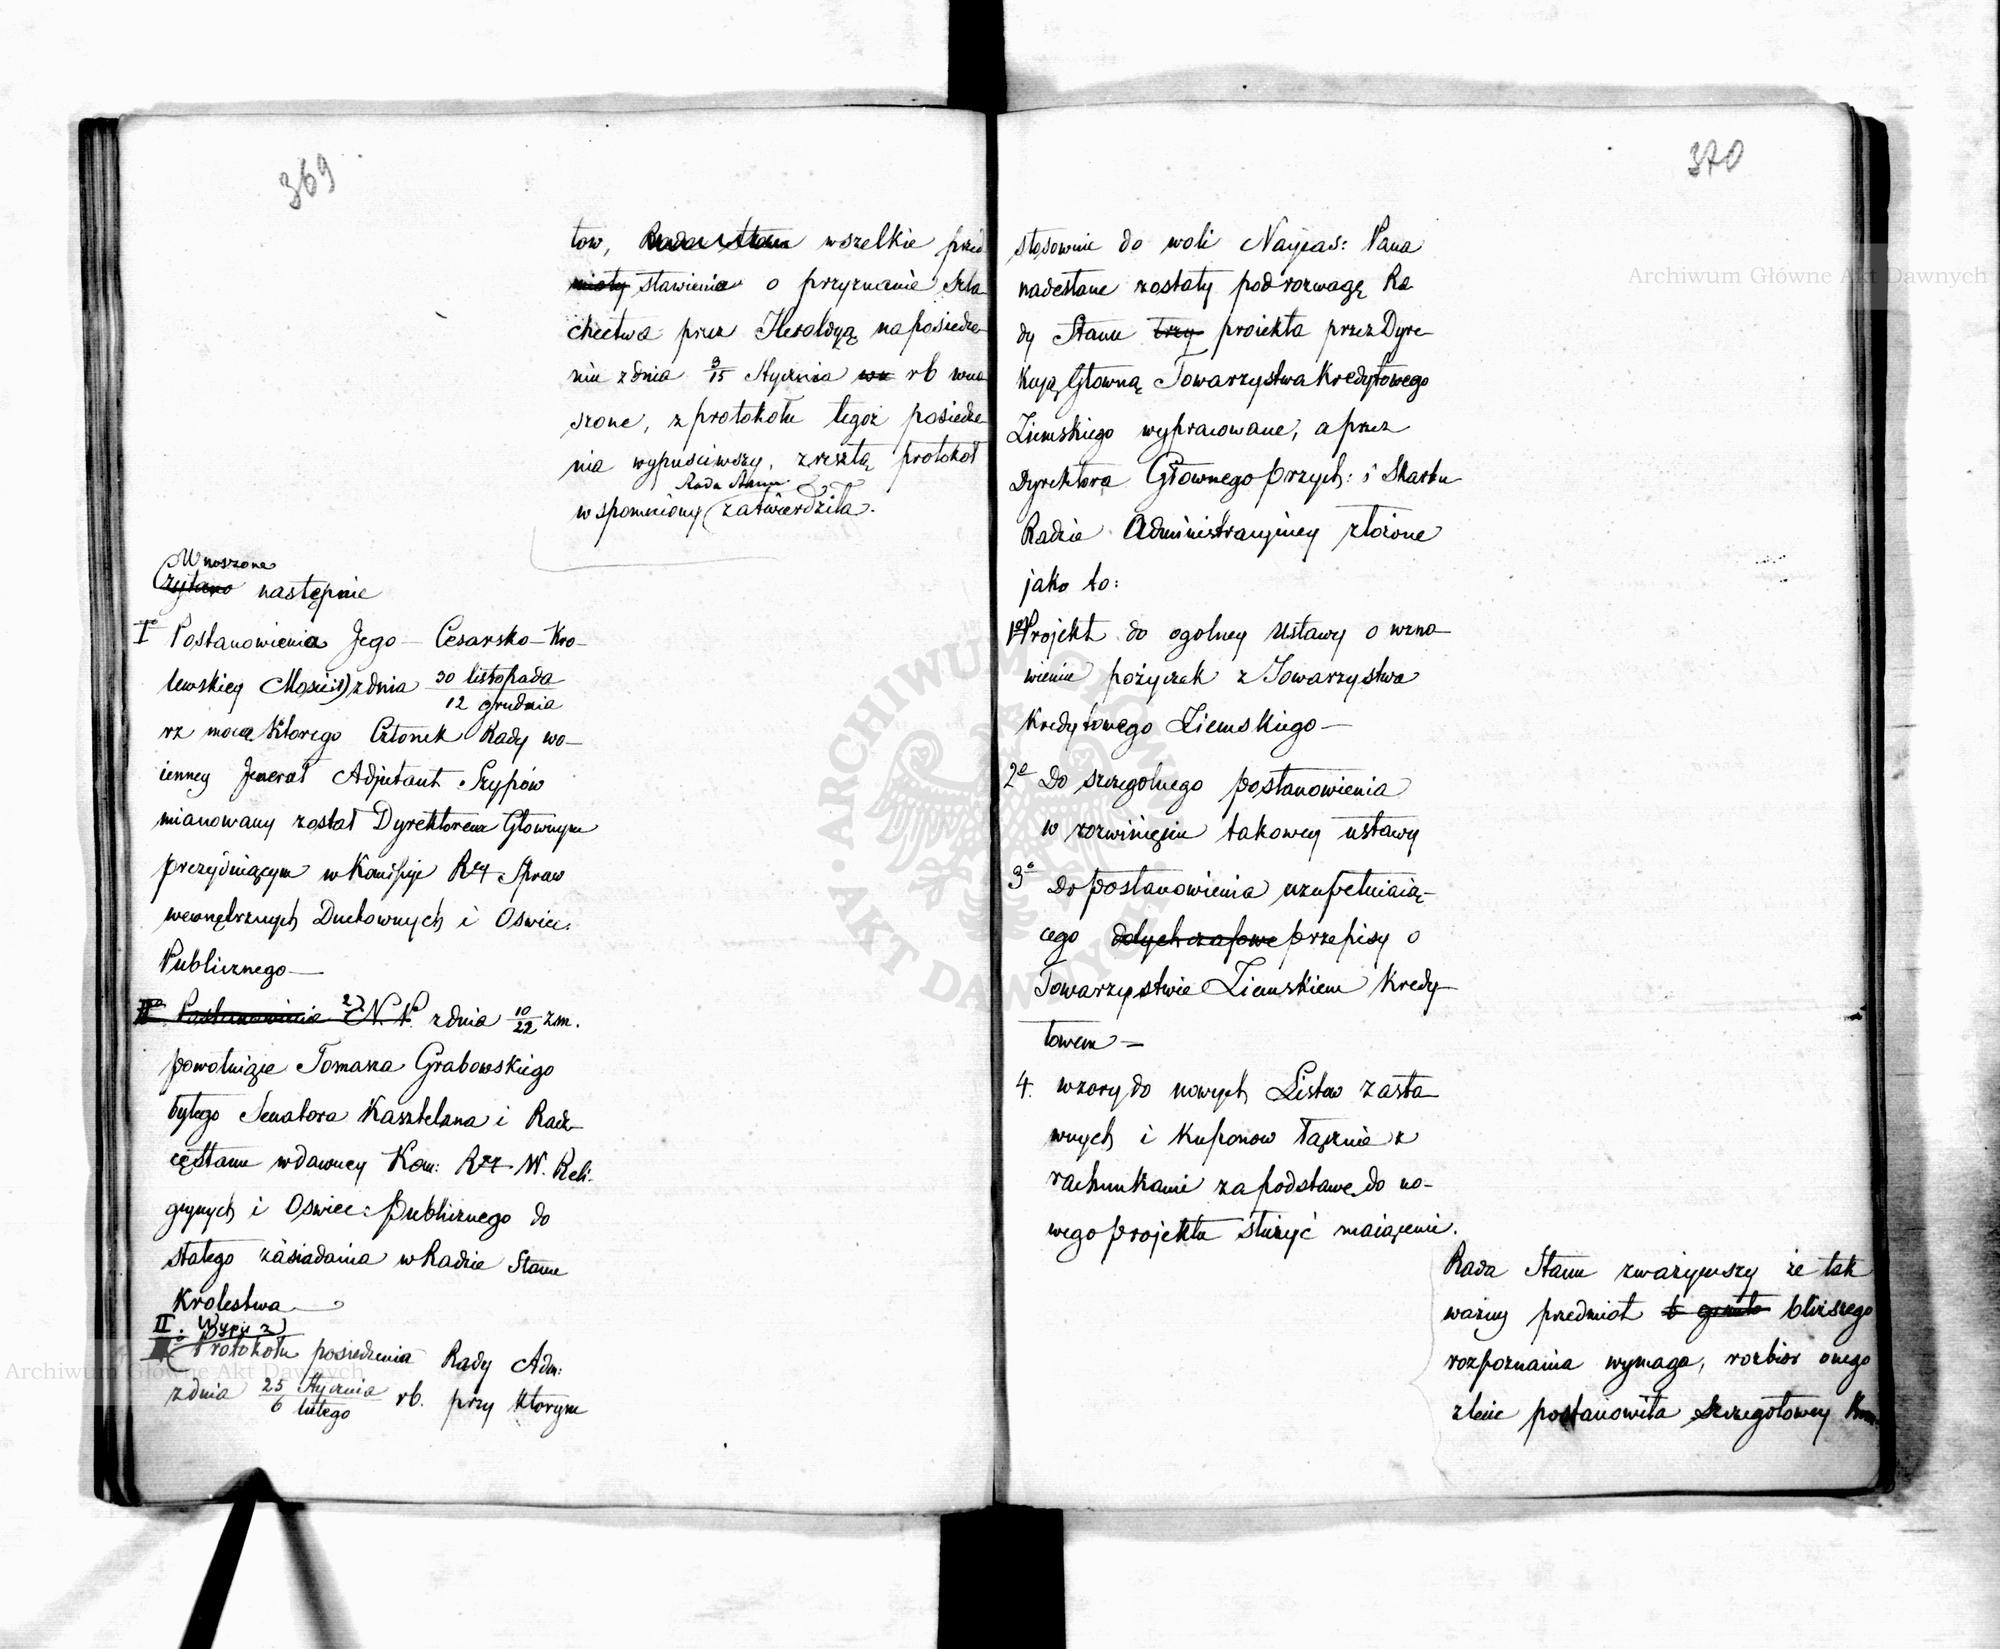 369
tow, ~~Rada Stanu~~ wszelkie przed
~~mioty~~ stawienia o przyznanie Szla
chectwa przez Heroldyą na posiedze
niu z dnia 3/15 Stycznia rb wno
szone, z protokołu tegoż posiedze
nia wypuściwszy, zresztą protokoł
Rada Stanu
wspomniony zatwierdziła.
Wnoszone
~~Czytano~~ następnie
I° Postanowienia Jego Cesarsko-Kro-
lewskiey Mości 1) z dnia 30 listopada / 12 grudnia
rz mocą ktorego Członek Rady wo-
ienney Jenerał Adjutant Szypów
mianowany został Dyrektorem Głownym
prezyduiącym w Kommissyi Rey Spraw
wewnętrznych Duchownych i Oswiec:
Publicznego —
~~II° Postanowienia~~ 2) N. P. z dnia 10/22 zm.
powołuiące Tomasza Grabowskiego
byłego Senatora Kasztelana i Radz-
cę Stanu w dawney Kom: Rz W. Reli-
giynych i Oswiec: Publicznego do
stałego zasiadania w Radzie Stanu
Krolestwa —
II. Wypis z
Protokołu posiedzenia Rady Adm:
z dnia 25 Stycznia / 6 lutego rb. przy ktorym
370
stosownie do woli Nayjaś: Pana
nadesłane zostały pod rozwagę Ra
dy Stanu ~~trzy~~ proiekta przez Dyre-
kcyą Głowną Towarzystwa Kredytowego
Ziemskiego wypracowane, a przez
Dyrektora Głownego Przych: i Skarbu
Radzie Administracyiney złożone
jako to:
1° Projekt do ogolney Ustawy o wzno-
wienie pożyczek z Towarzystwa
Kredytowego Ziemskiego —
2° Do szczegolnego postanowienia
w rozwinięciu takowey ustawy
3° Do postanowienia uzupełniaią-
cego ~~dotychczasowe~~ przepisy o
Towarzystwie Ziemskiem Kredy-
towem —
4. wzory do nowych Listow zasta-
wnych i Kuponow łącznie z
rachunkami za podstawę do no-
wego projektu służyć maiącemi.
Rada Stanu zważywszy że tak
ważny przedmiot bliższego
rozpoznania wymaga, rozbior onego
zlecić postanowiła szczegołowey Kom.
Archiwum Główne Akt Dawnych
Archiwum Główne Akt Dawnych
ARCHIWUM GŁÓWNE AKT DAWNYCH